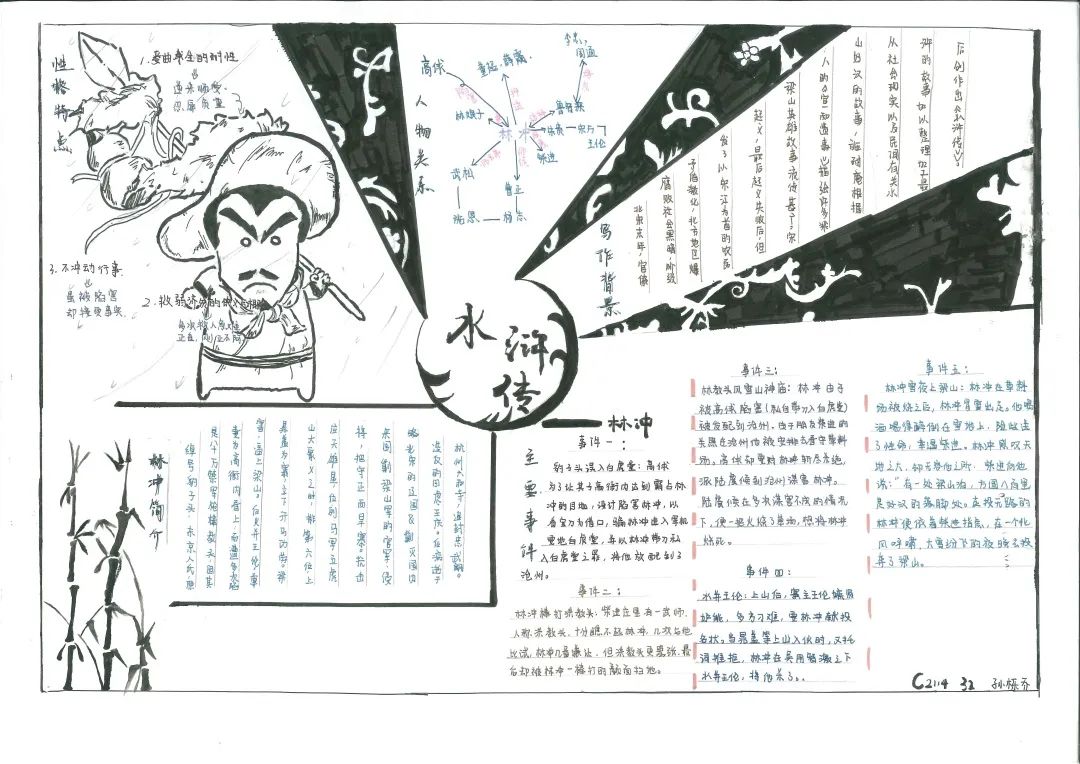 性格特点
1.委曲求全的耐性
逆来顺受
忍辱负重
3.不冲动行事
虽被陷害
却接受事实
2.
人物关系
高俅
董超、薛霸
李忠、
周通
鲁智深
林冲
林娘子
柴进
王伦
曹正
杨志
施恩
武松
写作背景
后创作出《水浒传》。
浒的故事加以整理加工最
从社会现实以及民间有关水
山好汉的故事,
梁山英雄故事流传甚广,宋
起义,最后起义失败后,但
发了以宋江为首的农民
腐败社会黑暗,阶级
北宋末年,官僚
水浒传
林冲
林冲简介
绰号:豹子头,东京人氏,原
是八十万禁军枪棒教头,因其
妻为高衙内看上而遭多次陷
害,逼上梁山。后火并王伦,尊
晁盖为寨主下开马功劳。梁
山大聚义之时,排第六位上
应天雄星,位列马军五虎
将,把守正西旱寨。抗击
朝廷围剿梁山军的官军,侵
略北宋的辽国以及剿灭国内
造反的田虎王庆。
杭州六和寺,追封忠武郎。
主要事件
事件一:
豹子头误入白虎堂:高俅
为了让其子高衙内达到霸占林
冲的目地,设计陷害林冲,以
看宝刀为借口,骗林冲进入军机
重地白虎堂,并以林冲带刀私
入白虎堂之罪,将他放配到了
沧州。
事件二:
林冲棒打洪教头:柴进庄里有一武师,
人称洪教头,十分瞧不起林冲,几次与他
比试,林冲几番谦让,但洪教头更嚣张,最
后却被林冲一棒打的颜面扫地。
事件三:
林教头风雪山神庙:林冲由于
被高俅陷害(私自带刀入白虎堂)
被发配到沧州,由于朋友柴进的
关照在沧州他被安排去看守草料
场,高俅却要对林冲斩尽杀绝,
派陆虞候到沧州谋害林冲。
陆虞候在多次谋害不成的情况
下,便一把火烧了草场,想将林冲
烧死。
事件四:
火并王伦:上山后,寨主王伦嫉贤
妒能,多方刁难,要林冲献投
名状。当晁盖等上山入伙时,又托
词推拒,林冲在吴用暗激之下
火并王伦,将他杀了。
事件五:
林冲雪夜上梁山:林冲在草料
场被烧之后,林冲冒雪出走。他喝
酒喝得醉倒在雪地上,险些送
了性命,幸遇柴进。林冲感叹天
地之大,却无容他之所。柴进向他
说:“有一处梁山泊,方圆八百里
是好汉的落脚处。走投无路的
林冲便依着柴进指点,在一个北
风呼啸,大雪纷飞的夜晚去投
奔了梁山。
C2114 32 孙栎乔